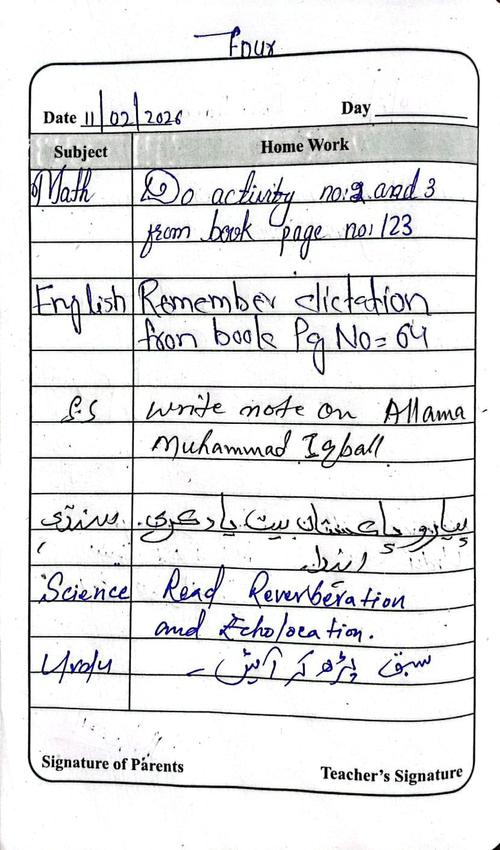 Four
Date 11/02/2026 Day
Subject Home Work
Math Do activity no:2 and 3
from book page no:123
English Remember dictation
from book Pg No= 64
write note on Allama
Muhammad Iqball
سنڌي پيارو پاڪستان بيت ياد ڪري
Science Read Reverberation
and Echolocation.
Urdu سبق پڑھ کر آئیں ۔
Signature of Parents Teacher's Signature